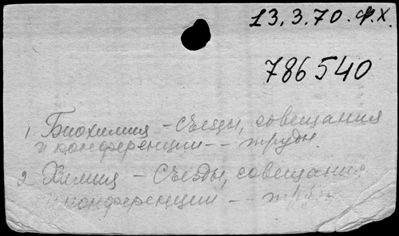 13.3.70.ф.х.
786540
1 Биохимия - съезды, совещания
и конференции -- труды.
2 Химия - съезды, совещания
конференции --